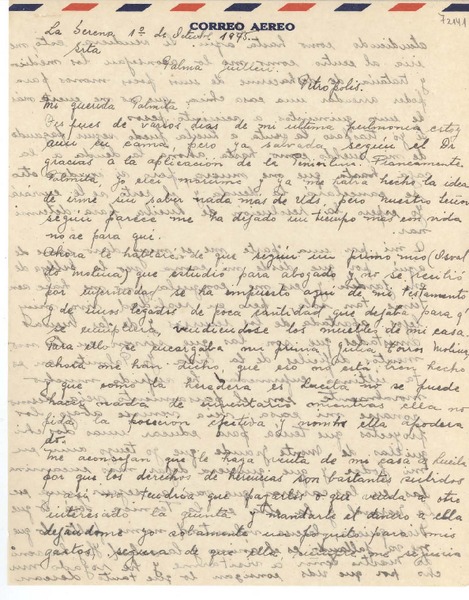 CORREO AEREO
7241
La Serena 1º de Octubre 1945.-
Srta
Palma Guillén.
Petrópolis.
Mi querida Palmita
Después de varios días de mi última pulmonía estoy
aquí en cama, pero ya salvada, según el Dr
gracias a la aplicación de la Penicilina. Francamente
Palmita yo creí morirme y ya me había hecho la idea
de irme sin saber nada mas de Uds, pero nuestro Señor
según parece me ha dejado un tiempo mas con vida
no se para qué.
Ahora le hablaré de que según un primo mío (Osval
do Molina) que estudió para abogado y no se recibió
por enfermedad, se ha impuesto aquí de mi testamento
y de unos legados de poca cantidad que dejaba para q'
se cumpliera, vendiéndose los muebles de mi casa
Para ello se encargaba mi prima Julia Torres Molina
ahora me han dicho, que eso no está bien hecho
y que como la heredera es Lucila no se puede
hacer nada de repartición mientras ella no
pida la posesión efectiva, y nombre ella apodera
do.
me aconsejan que le haga venta de mi casa a Lucila
por que los derechos de herencias son bastantes subidos
y así no tendría que pagarlos o que venda a otro
interesado la quinta y mandarle el dinero a ella
dejándome yo solamente unos poquitos para mis
gastos, segura de que ella nunca me
cho por que Uds